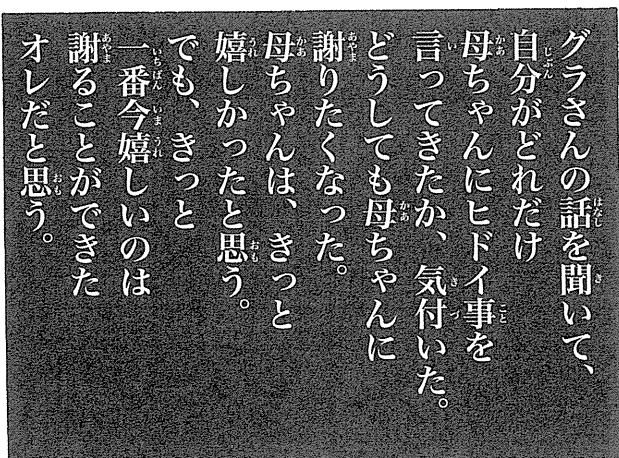 グラさんの話を聞いて、
自分がどれだけ
母ちゃんにヒドイ事を
言ってきたか、気付いた。
どうしても母ちゃんに
謝りたくなった。
母ちゃんは、きっと
嬉しかったと思う。
でも、きっと
一番今嬉しいのは
謝ることができた
オレだと思う。